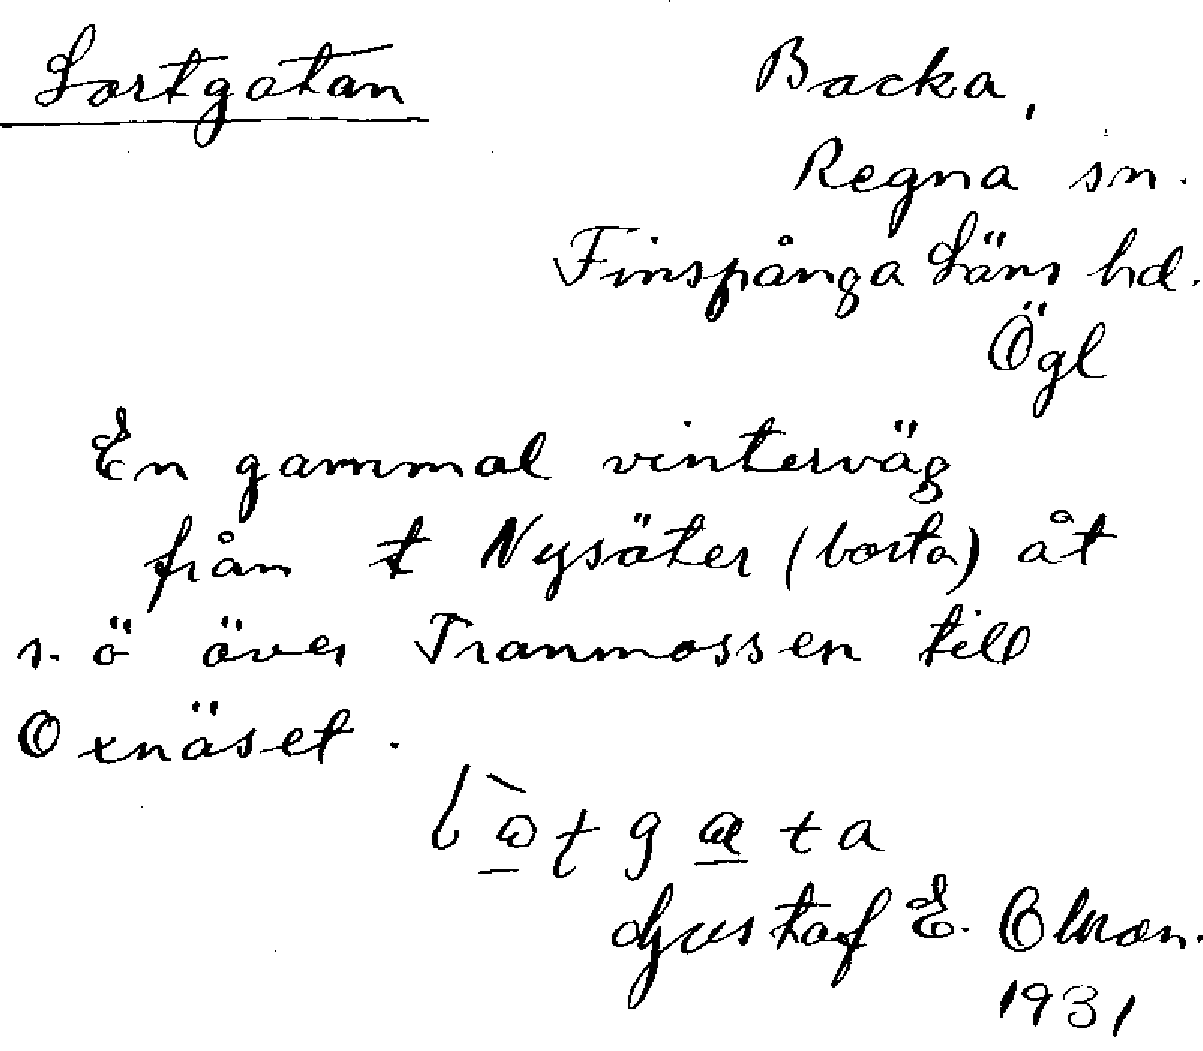 Lortgatan
Backa,
Regna sn.
Finspånga Läns hd.
Ögl
En gammal vinterväg
från t Nysäter (borta) åt
s. ö över Tranmossen till
Oxnäset.
Gustaf E. Olson.
1931